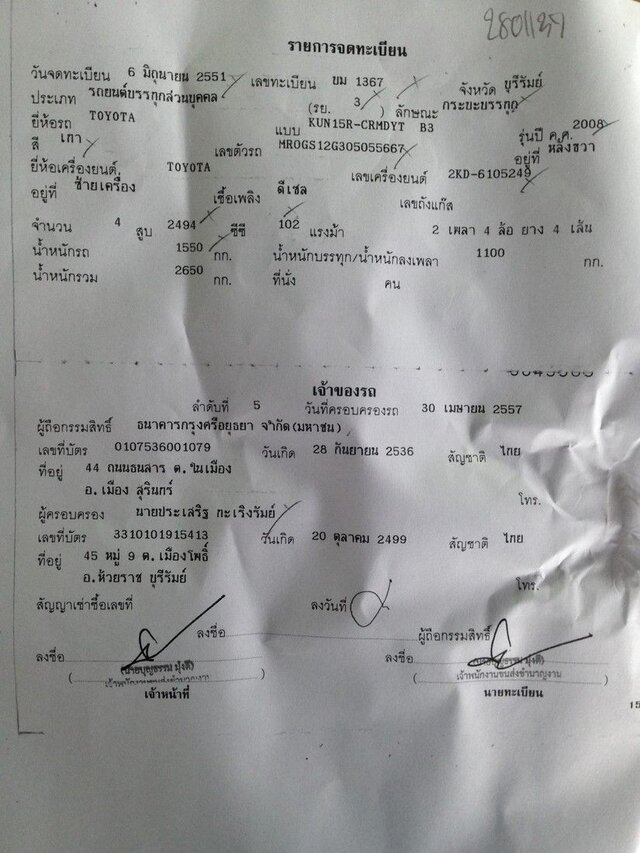 2801137
รายการจดทะเบียน
วันจดทะเบียน 6 มิถุนายน 2551 เลขทะเบียน ขม 1367 จังหวัด บุรีรัมย์
ประเภท รถยนต์บรรทุกส่วนบุคคล (รย. 3 ) ลักษณะ กระบะบรรทุก
ยี่ห้อรถ TOYOTA แบบ KUN15R-CRMDYT B3 รุ่นปี ค.ศ. 2008
สี เทา เลขตัวรถ MR0GS12G305055667 อยู่ที่ หลังขวา
ยี่ห้อเครื่องยนต์. TOYOTA เลขเครื่องยนต์ 2KD-6105249
อยู่ที่ ซ้ายเครื่อง เชื้อเพลิง ดีเซล เลขถังแก๊ส
จำนวน 4 สูบ 2494 ซีซี 102 แรงม้า 2 เพลา 4 ล้อ ยาง 4 เส้น
น้ำหนักรถ 1550 กก. น้ำหนักบรรทุก/น้ำหนักลงเพลา 1100 กก.
น้ำหนักรวม 2650 กก. ที่นั่ง คน
เจ้าของรถ
ลำดับที่ 5 วันที่ครอบครองรถ 30 เมษายน 2557
ผู้ถือกรรมสิทธิ์ ธนาคารกรุงศรีอยุธยา จำกัด(มหาชน)
เลขที่บัตร 0107536001079 วันเกิด 28 กันยายน 2536 สัญชาติ ไทย
ที่อยู่ 44 ถนนธนสาร ต.ในเมือง
อ.เมือง สุรินทร์ โทร.
ผู้ครอบครอง นายประเสริฐ กะเริงรัมย์
เลขที่บัตร 3310101915413 วันเกิด 20 ตุลาคม 2499 สัญชาติ ไทย
ที่อยู่ 45 หมู่ 9 ต.เมืองโพธิ์
อ.ห้วยราช บุรีรัมย์ โทร.
สัญญาเช่าซื้อเลขที่ ลงวันที่
ลงชื่อ ผู้ถือกรรมสิทธิ์
ลงชื่อ ลงชื่อ
(นายบุญธรรม มุ่งดี)
เจ้าพนักงานขนส่งชำนาญงาน เจ้าพนักงานขนส่งชำนาญงาน
เจ้าหน้าที่ นายทะเบียน
15